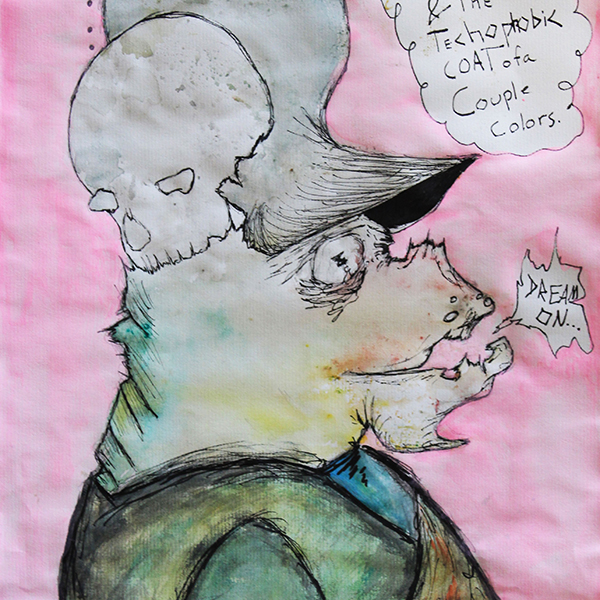 & The
Techophobic
COAT of a
Couple
Colors.
DREAM
ON...